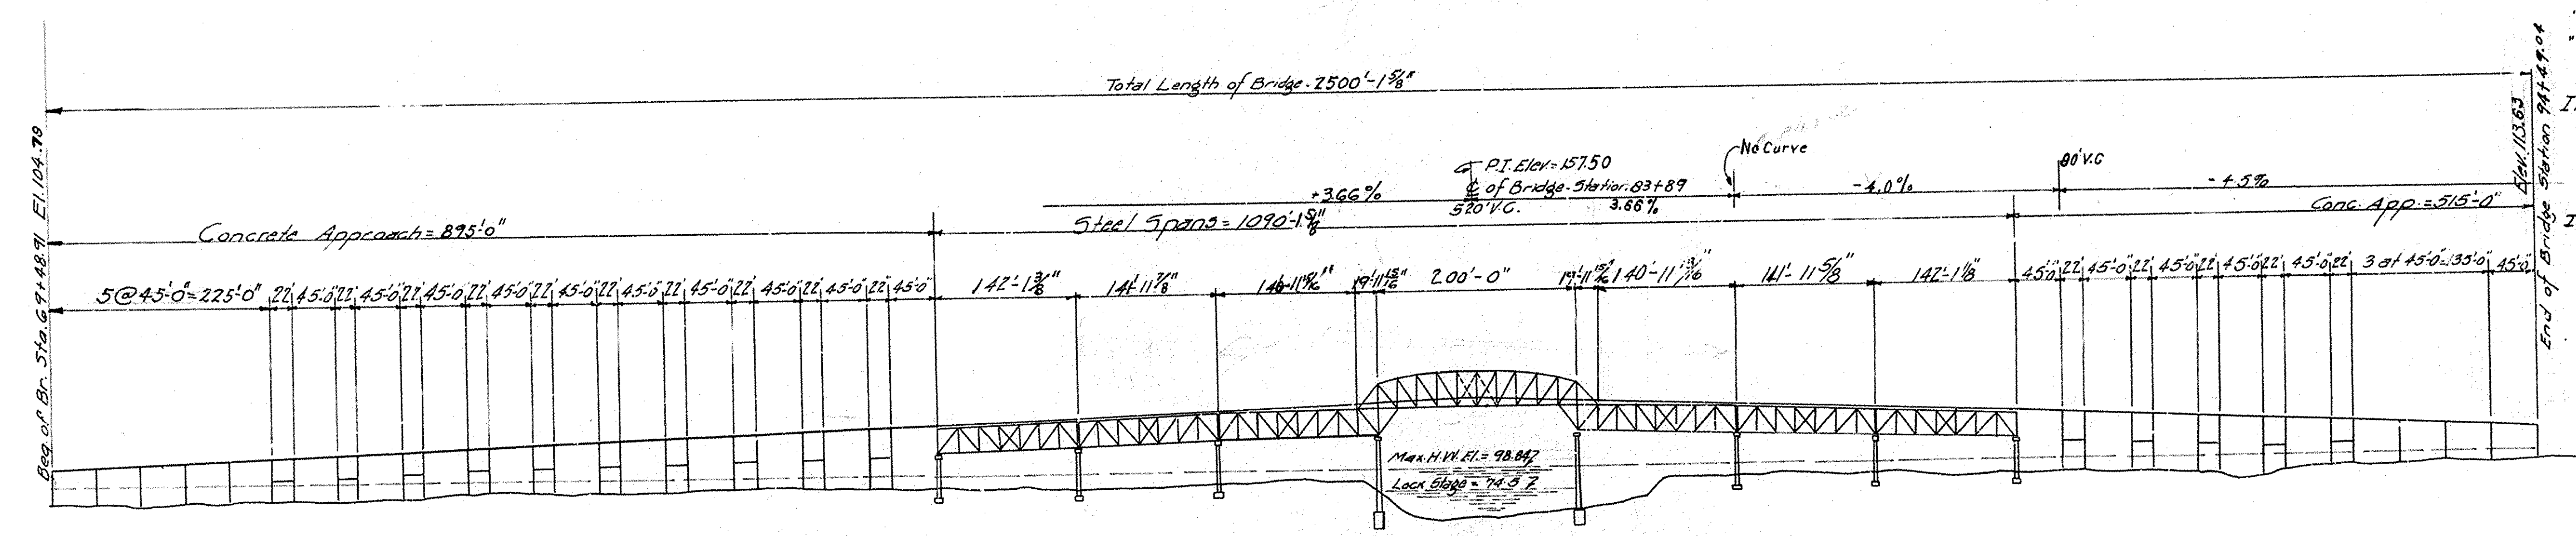 Total Length of Bridge-2500'-1 5/8"
Beg. of Br. Sta. 69+48.91 El. 104.79
End of Bridge Station 94+49.04
Elev. 113.63
No Curve
P.I. Elev.=157.50
80' V.C
+3.66%
℄ of Bridge-Station 83+89
-4.0%
-4.5%
520' V.C.
3.66%
Concrete Approach=895'-0"
Steel Spans=1090'-1 5/8"
Conc. App.=515'-0"
5@45'-0"=225'-0" 22' 45'-0" 22' 45'-0" 22' 45'-0" 22' 45'-0" 22' 45'-0" 22' 45'-0" 22' 45'-0" 22' 45'-0" 22' 45'-0" 22' 45'-0" 142'-1 3/8" 141'-11 7/8" 140'-11 15/16" 19'-11 15/16" 200'-0" 19'-11 15/16" 140'-11 15/16" 141'-11 5/8" 142'-1 1/8" 45'-0" 22' 45'-0" 22' 45'-0" 22' 45'-0" 22' 45'-0" 22' 3 at 45'-0"=135'-0" 45'-0"
Max. H.W. El.= 98.847
Lock Stage = 74.57